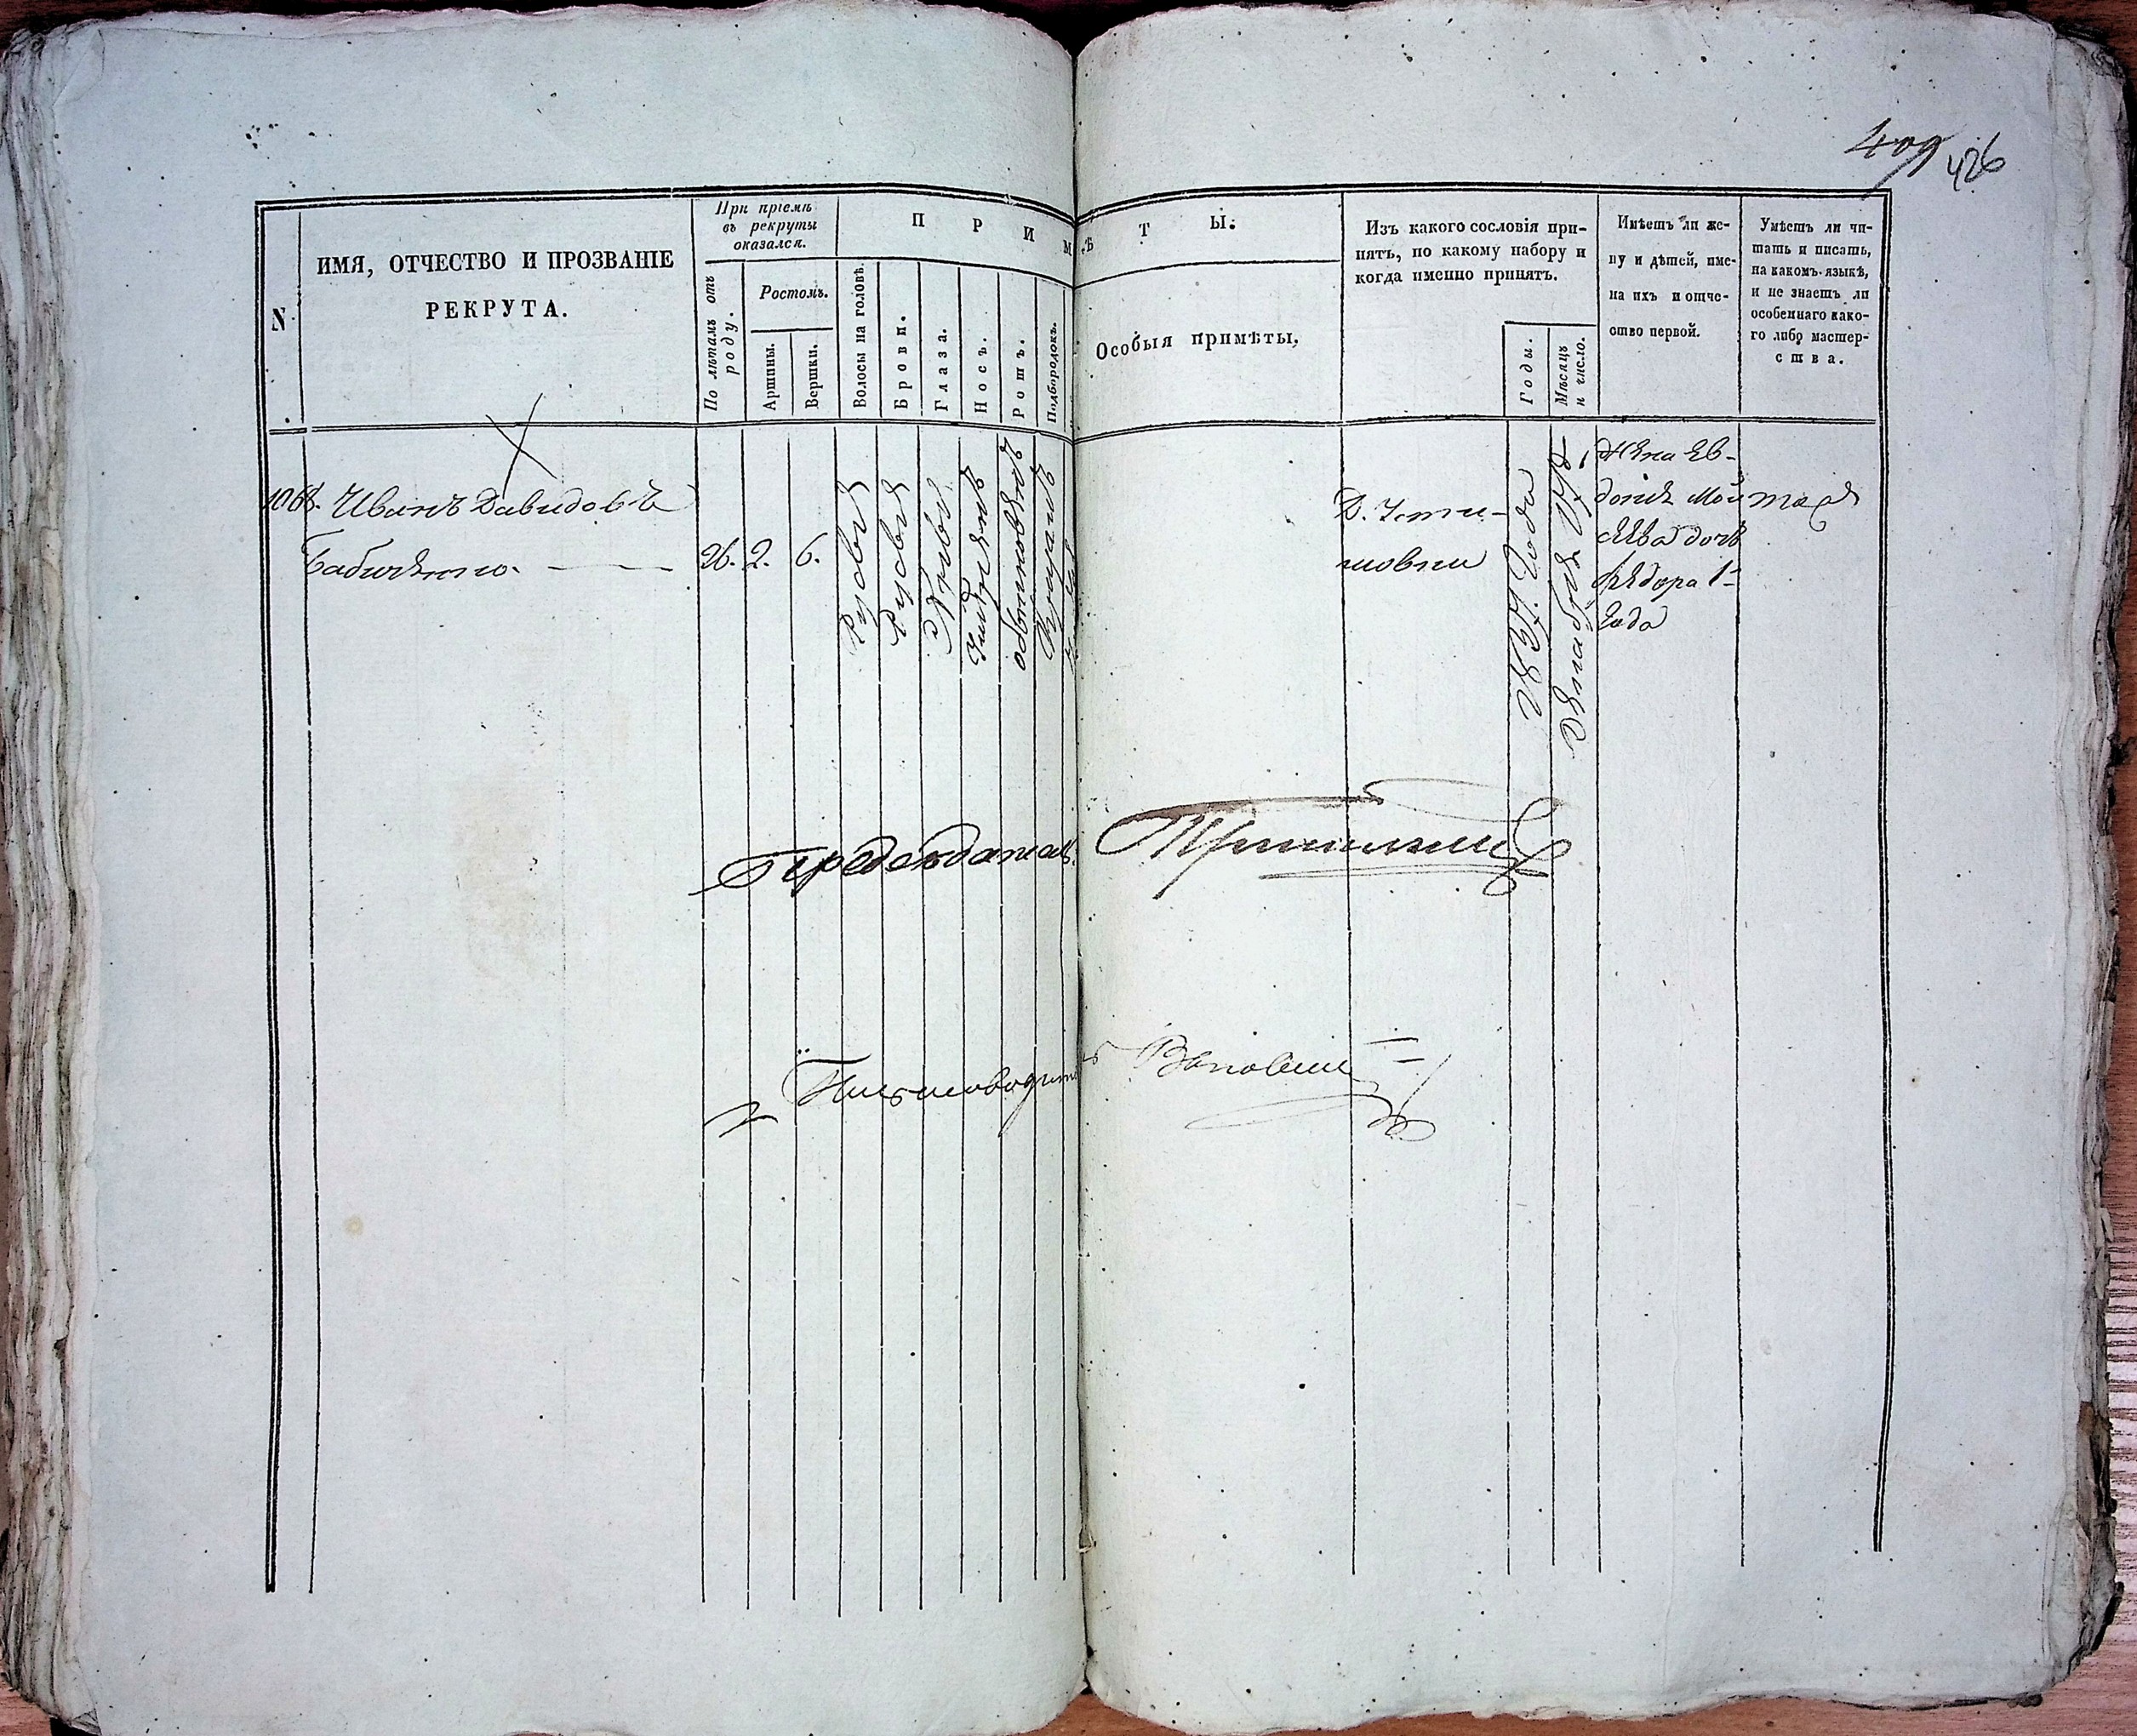 409
426
N
ИМЯ, ОТЧЕСТВО И ПРОЗВАНІЕ
РЕКРУТА.
При пріемѣ
въ рекруты
оказался.
По лѣтамъ отъ
роду.
Ростомъ.
Аршины.
Вершки.
ПРИМѢТЫ.
Волосы на головѣ.
Брови.
Глаза.
Носъ.
Ротъ.
Подбородокъ.
Особыя примѣты,
Изъ какого сословія при-
нятъ, по какому набору и
когда именно принятъ.
Годы.
Мѣсяцъ
и число.
Имѣетъ ли же-
ну и дѣтей, име-
на ихъ и отче-
ство первой.
Умѣетъ ли чи-
тать и писать,
на какомъ языкѣ,
и не знаетъ ли
особеннаго како-
го либо мастер-
ства.
Иванъ Давидовъ
Бабиченко.
26.
2.
6.
Русыя
Русыя
обыкновенъ
Д.
новки
Года
Декабря
жена Ев-
докія Мои
сеева дочь
Федора 1-
года
Предсѣдатель
Письмоводитель